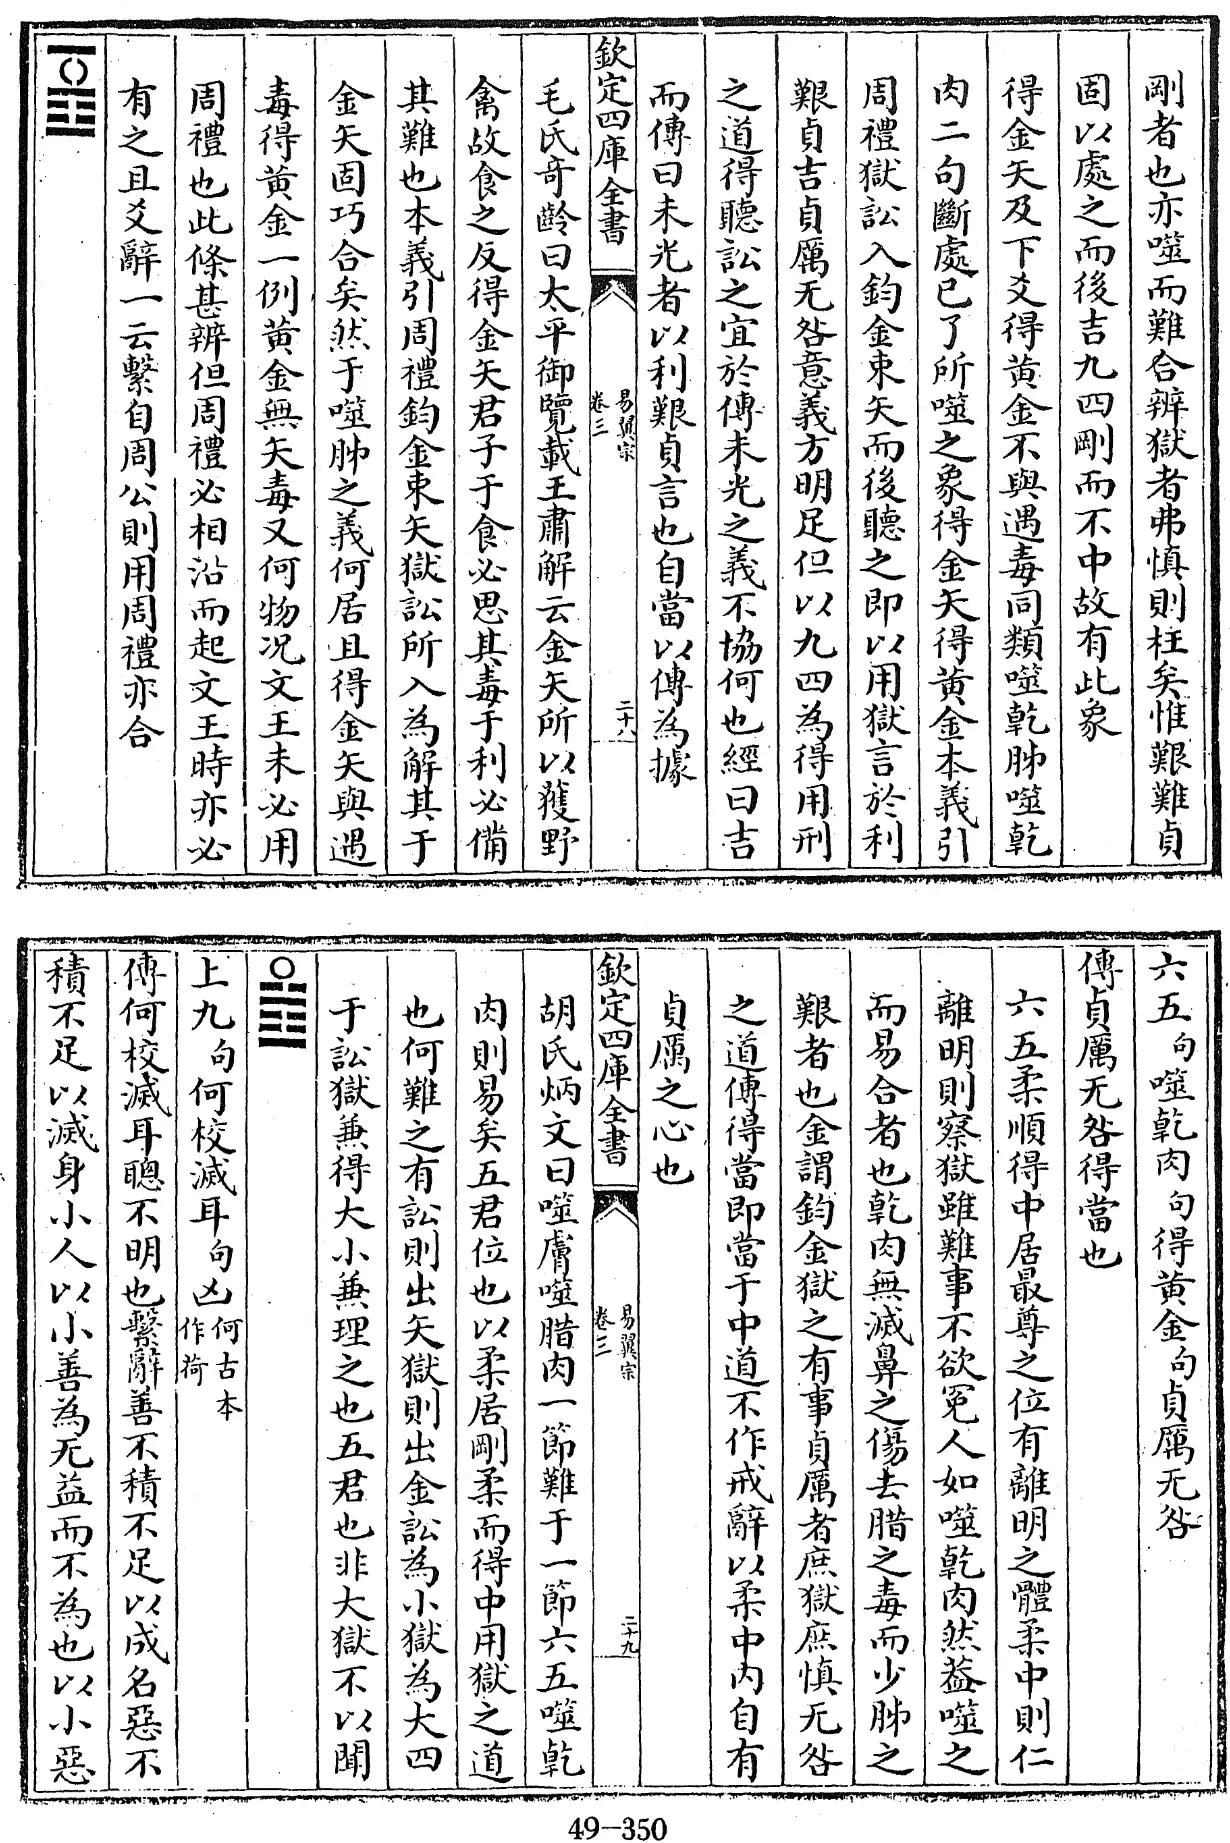 剛者也亦噬而難合辨獄者弗慎則枉矣惟艱難貞
固以處之而後吉九四剛而不中故有此象
得金矢及下爻得黃金不與遇毒同類噬乾胏噬乾
肉二句斷處已了所噬之象得金矢得黃金本義引
周禮獄訟入鈞金束矢而後聽之即以用獄言於利
艱貞吉貞厲无咎意義方明足但以九四為得用刑
之道得聽訟之宜於傳未光之義不協何也經曰吉
而傳曰未光者以利艱貞言也自當以傳為據
欽定四庫全書
易翼宗
卷三
二十八
毛氏奇齡曰太平御覽載王肅解云金矢所以獲野
禽故食之反得金矢君子于食必思其毒于利必備
其難也本義引周禮鈞金束矢獄訟所入為解其于
金矢固巧合矣然于噬胏之義何居且得金矢與遇
毒得黃金一例黃金無矢毒又何物况文王未必用
周禮也此條甚辨但周禮必相沿而起文王時亦必
有之且爻辭一云繫自周公則用周禮亦合
六五句噬乾肉句得黃金句貞厲无咎
傳貞厲无咎得當也
六五柔順得中居最尊之位有離明之體柔中則仁
離明則察獄雖難事不欲冤人如噬乾肉然蓋噬之
而易合者也乾肉無滅鼻之傷去腊之毒而少胏之
艱者也金謂鈞金獄之有事貞厲者庶獄庶慎无咎
之道傳得當即當于中道不作戒辭以柔中內自有
貞厲之心也
欽定四庫全書
易翼宗
卷三
二十九
胡氏炳文曰噬膚噬腊肉一節難于一節六五噬乾
肉則易矣五君位也以柔居剛柔而得中用獄之道
也何難之有訟則出矢獄則出金訟為小獄為大四
于訟獄兼得大小兼理之也五君也非大獄不以聞
上九句何校滅耳句凶何古本
作荷
傳何校滅耳聰不明也繫辭善不積不足以成名惡不
積不足以滅身小人以小善為无益而不為也以小惡
49-350